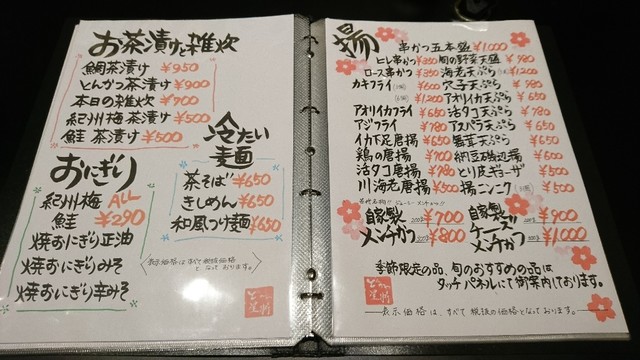 お茶漬けと雑炊
鯛茶漬け ¥950
とんかつ茶漬け ¥900
本日の雑炊 ¥700
紀州梅茶漬け ¥500
鮭 茶漬け ¥500
おにぎり
紀州梅 ALL
鮭 ¥290
焼おにぎり正油
焼おにぎりみそ
焼おにぎり辛みそ
冷たい
麺
茶そば ¥650
きしめん ¥650
和風つけ麺 ¥650
表示価格はすべて税抜価格
となっております。
揚
串かつ五本盛 ¥1,000
ヒレ串かつ
ロース串かつ
カキフライ ¥600
¥1,200
アオリイカフライ ¥650
アジフライ ¥780
イカ下足唐揚 ¥650
鶏の唐揚 ¥700
活タコ唐揚
川海老唐揚 ¥500
旬の野菜天盛 ¥780
海老天ぷら ¥1,200
穴子天ぷら ¥780
アオリイカ天ぷら ¥650
活タコ天ぷら ¥780
アスパラ天ぷら ¥650
天ぷら ¥650
納豆磯辺揚 ¥600
とり皮ギョーザ ¥500
揚ニンニク ¥500
自家製
メンチかつ
¥700
¥800
自家製
チーズ
メンチかつ
¥900
¥1,000
季節限定の品、旬のおすすめの品は
タッチパネルにて御案内しております。
表示価格は、すべて税抜の価格となっております。